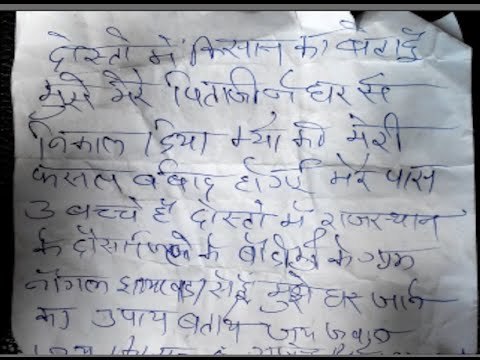 दोस्तो में किसान का बेटा हूँ
मुझे मेरे पिताजी ने घर से
निकाल दिया क्यो की मेरी
फसल बर्बाद होगई मेरे पास
3 बच्चे है दोस्तो में राजस्थान
के दौसा जिले के बाँदीकुई के ग्राम
नॉगल मुझे घर जाने
का उपाय बताय जय जवान